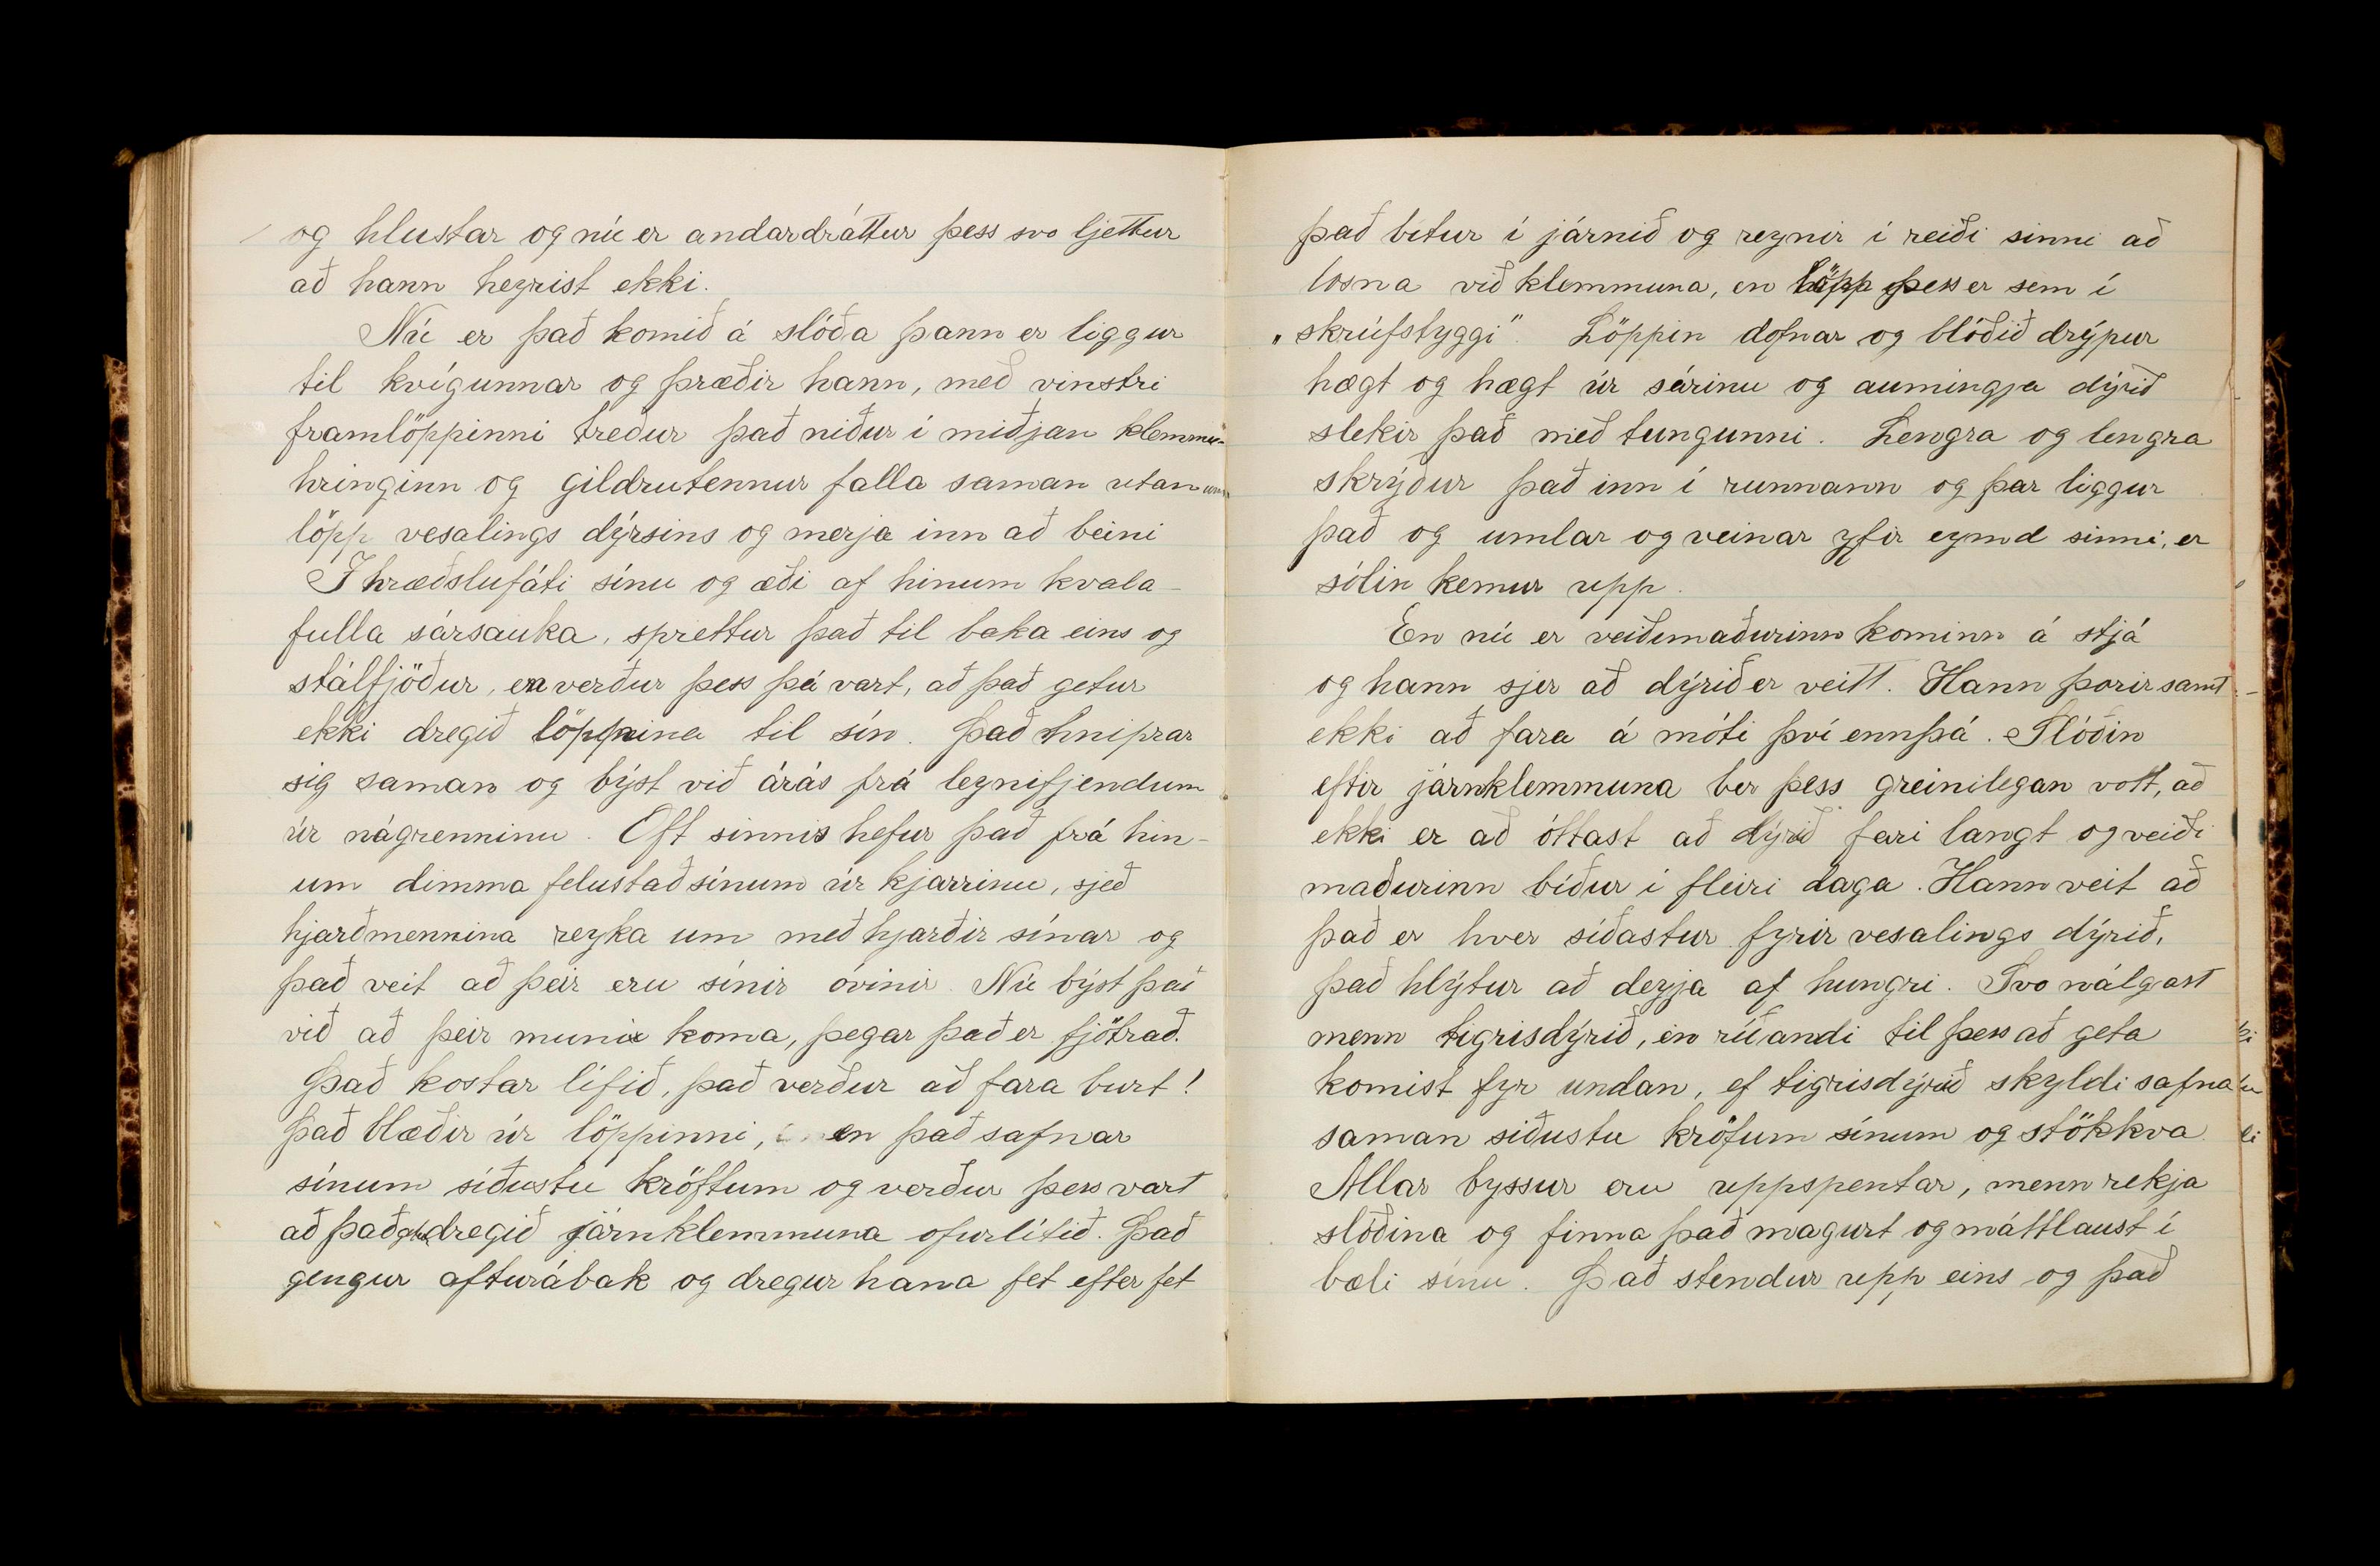 og hlustar og nú er andardráttur þess svo ljettur
að hann heyrist ekki.
Nú er það komið á slóða þann er liggur
til kvígunnar og þræðir hann, með vinstri
framlöppinni treður það niður í miðjan klemmu-
hringinn og gildrutennur falla saman utan um
löpp vesalings dýrsins og merja inn að beini
Í hræðslufáti sínu og æði af hinum kvala-
fulla sársauka, sprettur það til baka eins og
stálfjöður, en verður þess þá vart, að það getur
ekki dregið löppina til sín. Það hniprar
sig saman og býst við árás frá leynifjendum
úr nágrenninu. Oft sinnis hefur það frá hin-
um dimma felustað sínum úr kjarrinu, sjeð
hjarðmennina reyka um með hjarðir sínar og
það veit að þeir eru sínir óvinir. Nú býst það
við að þeir muni koma, þegar það er fjötrað.
Það kostar lífið, það verður að fara burt!
Það blæðir úr löppinni, en það safnar
sínum síðustu kröftum og verður þess vart
að það getur dregið járnklemmuna ofurlítið. Það
gengur afturábak og dregur hana fet efter fet
það bítur í járnið og reynir í reiði sinni að
losna við klemmuna, en löpp þess er sem í
„skrúfstyggi“. Löppin dofnar og blóðið drýpur
hægt og hægt úr sárinu og aumingja dýrið
slekir það með tungunni. Lengra og lengra
skrýður það inn í runnann og þar liggur
það og umlar og veinar yfir eymd sinni, er
sólin kemur upp.
En nú er veiðimaðurinn kominn á stjá
og hann sjer að dýrið er veitt. Hann þorir samt
ekki að fara á móti því ennþá. Slóðin
eftir járnklemmuna ber þess greinilegan vott, að
ekki er að óttast að dýrið fari langt og veiði
maðurinn bíður í fleiri daga. Hann veit að
það er hver síðastur fyrir vesalings dýrið,
það hlýtur að deyja af hungri. Svo nálgast
menn tigrisdýrið, en ríðandi til þess að geta
komist fyr undan, ef tigrisdýrið skyldi safna
saman síðustu kröfum sínum og stökkva
Allar byssur eru uppspentar, menn rekja
slóðina og finna það magurt og máttlaust í
bæli sínu. Það stendur upp eins og það